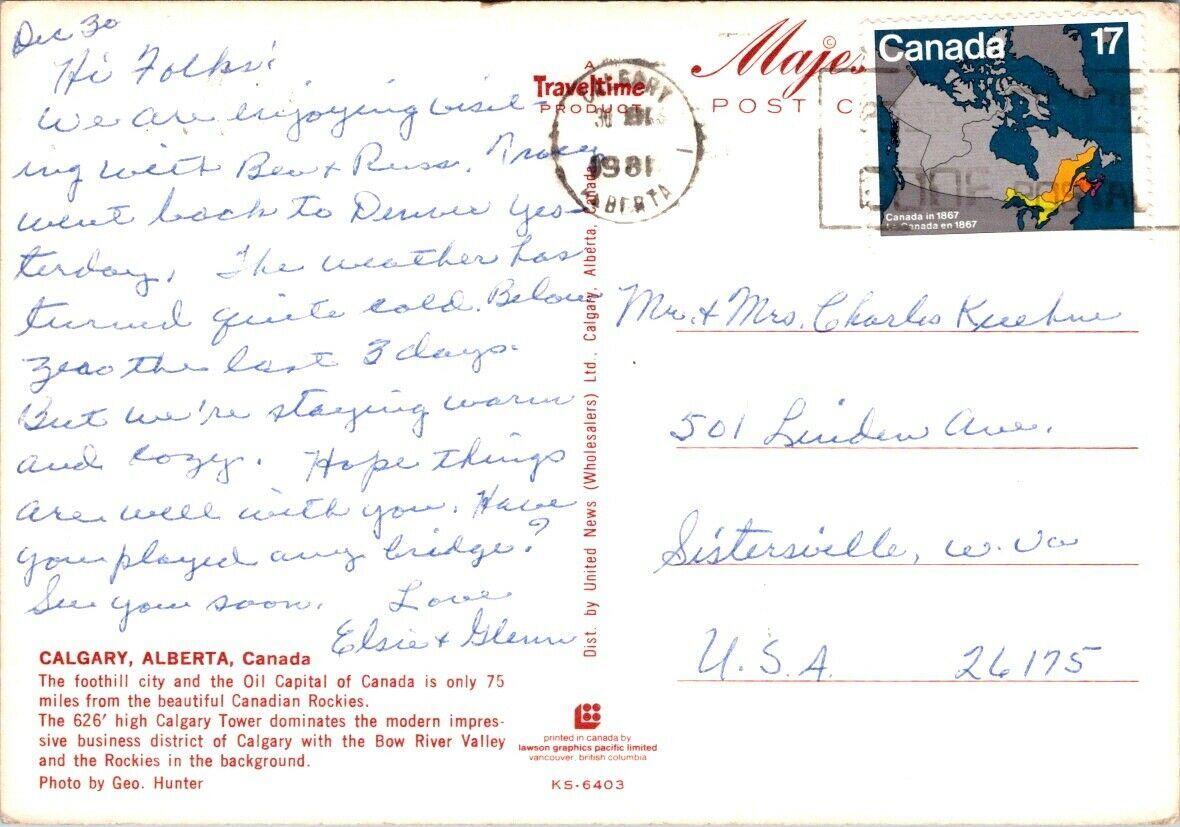 Dec 30
Hi Folks!
We are enjoying visit-
ing with Bev & Russ. Tracey
went back to Denver yes-
terday. The weather has
turned quite cold. Below
zero the last 3 days.
But we're staying warm
and cozy. Hope things
are well with you. Have
you played any bridge?
See you soon. Love
Elsie & Glenn
CALGARY, ALBERTA, Canada
The foothill city and the Oil Capital of Canada is only 75
miles from the beautiful Canadian Rockies.
The 626' high Calgary Tower dominates the modern impres-
sive business district of Calgary with the Bow River Valley
and the Rockies in the background.
Photo by Geo. Hunter
A
Traveltime
PRODUCT
Dist. by United News (Wholesalers) Ltd., Calgary, Alberta, Canada
printed in canada by
lawson graphics pacific limited
vancouver, british columbia
KS-6403
©
POST
CALGARY
30
1981
ALBERTA
Canada 17
Canada in 1867
Le Canada en 1867
CODE POSTAL
Mr. & Mrs. Charles Kuehne
501 Linden Ave.
Sistersville, W. Va
U.S.A. 26175